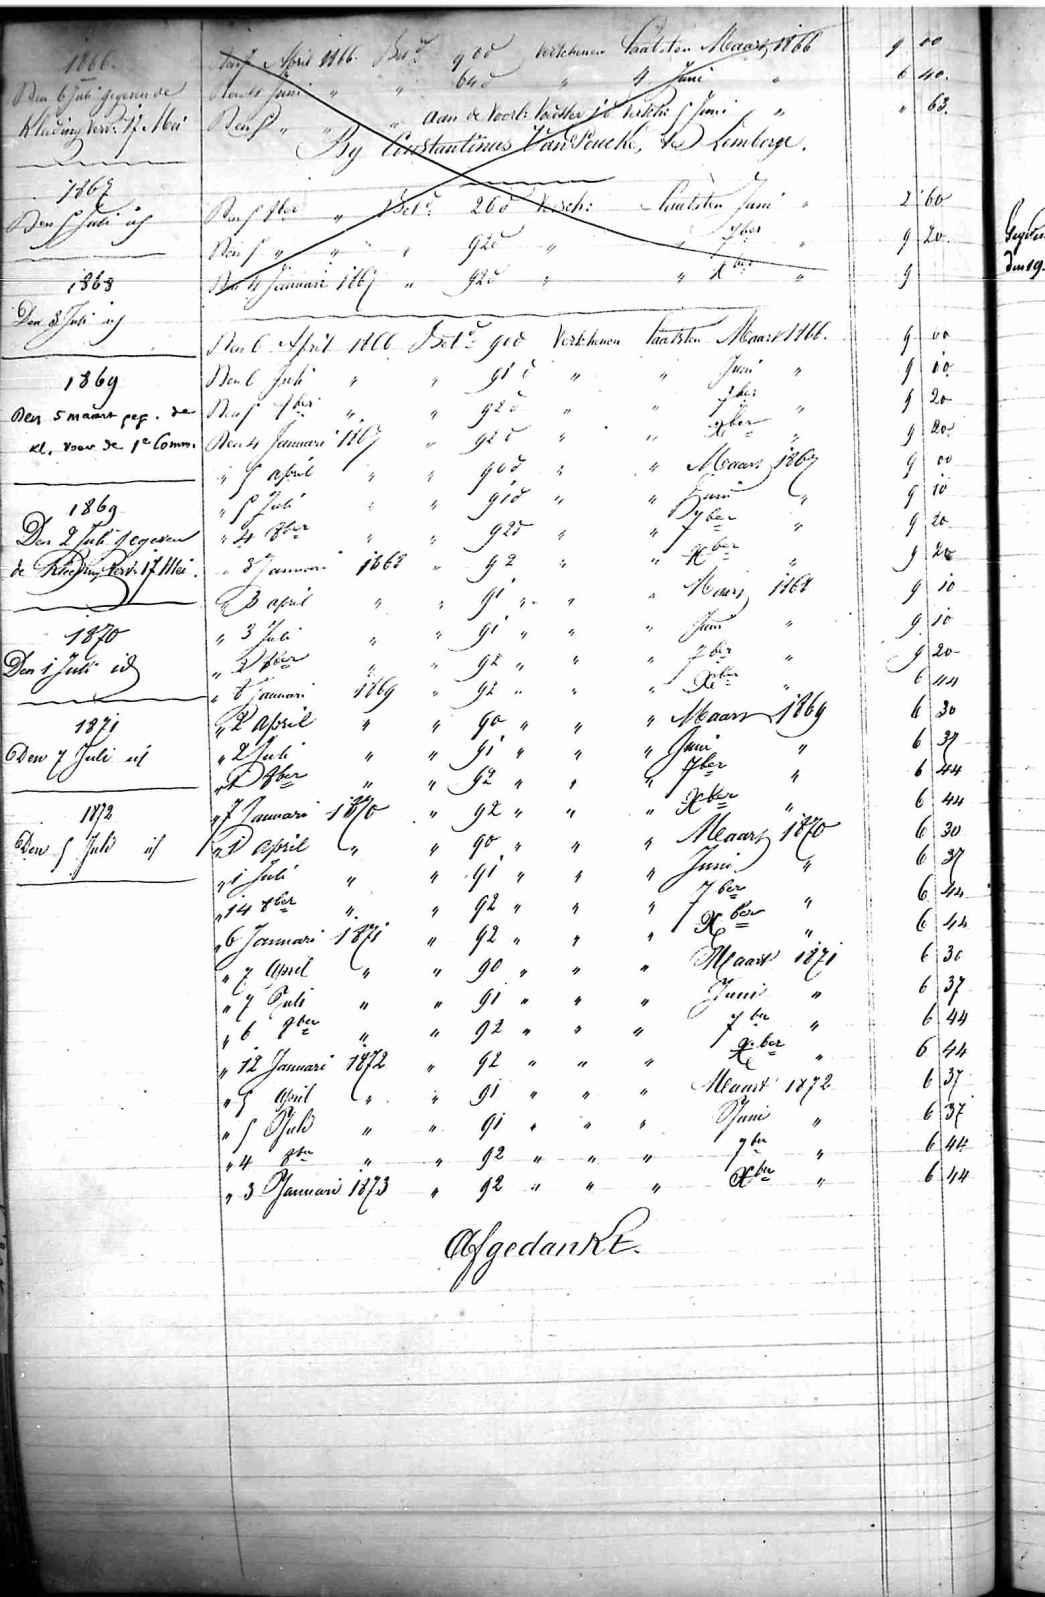 1866.
Den 6 Juli gegeven de
Kleeding verv: 17 Mei
1867
Den 5 Juli id
1868
Den 3 Juli id
1869
Den 5 maart geg. de
kl. voor de 1e Comm.
1869
Den 2 Juli gegeven
de Kleeding verv. 17 Mei.
1870
Den 1 Juli id
1871
Den 7 Juli id
1872
Den 5 Juli id
April 1866. Betd 90 d verschenen laatsten Maart 1866 9 00
Juni " " 64 d " " Juni " 6 40.
Den 5 " " " aan de Juni " " 63.
By Constantinus Van Peucke, te Lemberge.
Den 5 8ber " Betd. 26 d versch: Laatsten Juni " 2 60
Den 5 " " " 92 d " " 7ber " 9 20
Den 4 Januari 1867 " 92 d " " Xber " 9
Den 6 April 1866 Betd 90 d verschenen laatsten Maart 1866. 9 00
Den 6 Juli " " 91 d " " Juni " 9 10
Den 5 8ber " " 92 d " " 7ber " 9 20
Den 4 Januari 1867 " 92 d " " Xber " 9 20
" 5 april " " 90 d " " Maart 1867 9 00
" 5 Juli " " 91 d " " Juni " 9 10
" 4 8ber " " 92 d " " 7ber " 9 20
" 3 Januari 1868 " 92 " " Xber " 9 20
" 3 april " " 91 " " " Maart 1868 9 10
" 3 Juli " " 91 " " " Juni " 9 10
" 2 8ber " " 92 " " " 7ber " 9 20
" 8 Januari 1869 " 92 " " " Xber " 6 44
" 2 april " " 90 " " " Maart 1869 6 30
" 2 Juli " " 91 " " " Juni " 6 37
" 1 8ber " " 92 " " " 7ber " 6 44
" 7 Januari 1870 " 92 " " " Xber " 6 44
" 1 april " " 90 " " " Maart 1870 6 30
" 1 Juli " " 91 " " " Juni " 6 37
" 14 8ber " " 92 " " " 7ber " 6 44
" 6 Januari 1871 " 92 " " " Xber " 6 44
" 7 april " " 90 " " " Maart 1871 6 30
" 7 Juli " " 91 " " " Juni " 6 37
" 6 8ber " " 92 " " " 7ber " 6 44
" 12 Januari 1872 " 92 " " " Xber " 6 44
" 5 april " " 91 " " " Maart 1872 6 37
" 5 Juli " " 91 " " " Juni " 6 37
" 4 8ber " " 92 " " " 7ber " 6 44
" 3 Januari 1873 " 92 " " " Xber " 6 44
Afgedankt.
den 19.